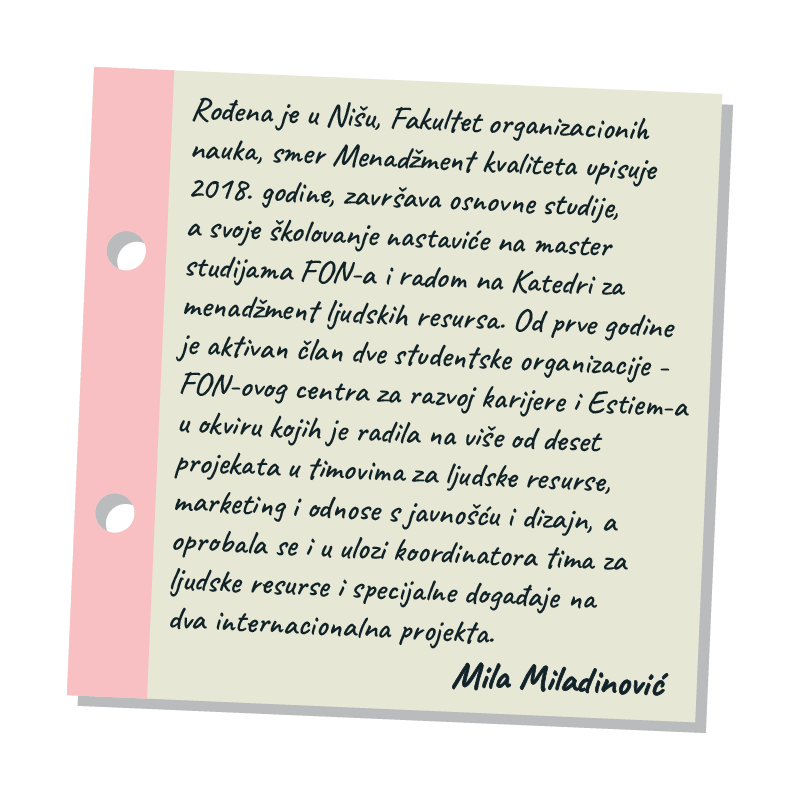 Rođena je u Nišu, Fakultet organizacionih
nauka, smer Menadžment kvaliteta upisuje
2018. godine, završava osnovne studije,
a svoje školovanje nastaviće na master
studijama FON-a i radom na Katedri za
menadžment ljudskih resursa. Od prve godine
je aktivan član dve studentske organizacije -
FON-ovog centra za razvoj karijere i Estiem-a
u okviru kojih je radila na više od deset
projekata u timovima za ljudske resurse,
marketing i odnose s javnošću i dizajn, a
oprobala se i u ulozi koordinatora tima za
ljudske resurse i specijalne događaje na
dva internacionalna projekta.
Mila Miladinović